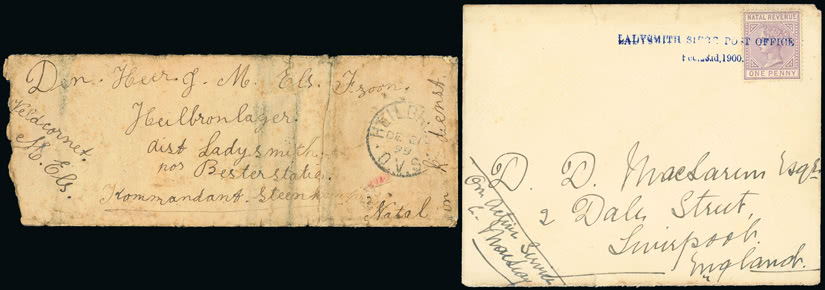 Den Heer J. M. Els. Fzoon.
Heilbronlager.
dist Ladysmith.
pos Besterstatie.
Kommandant Steenkamp
Natal
Veldcornet.
Els.
in dienst
HEILBR
DE
99
O.V.S.
LADYSMITH SIEGE POST OFFICE
1900.
NATAL REVENUE
ONE PENNY
D. D. MacLaren Esqr
2 Dale Street,
Liverpool.
England.
On Active Service